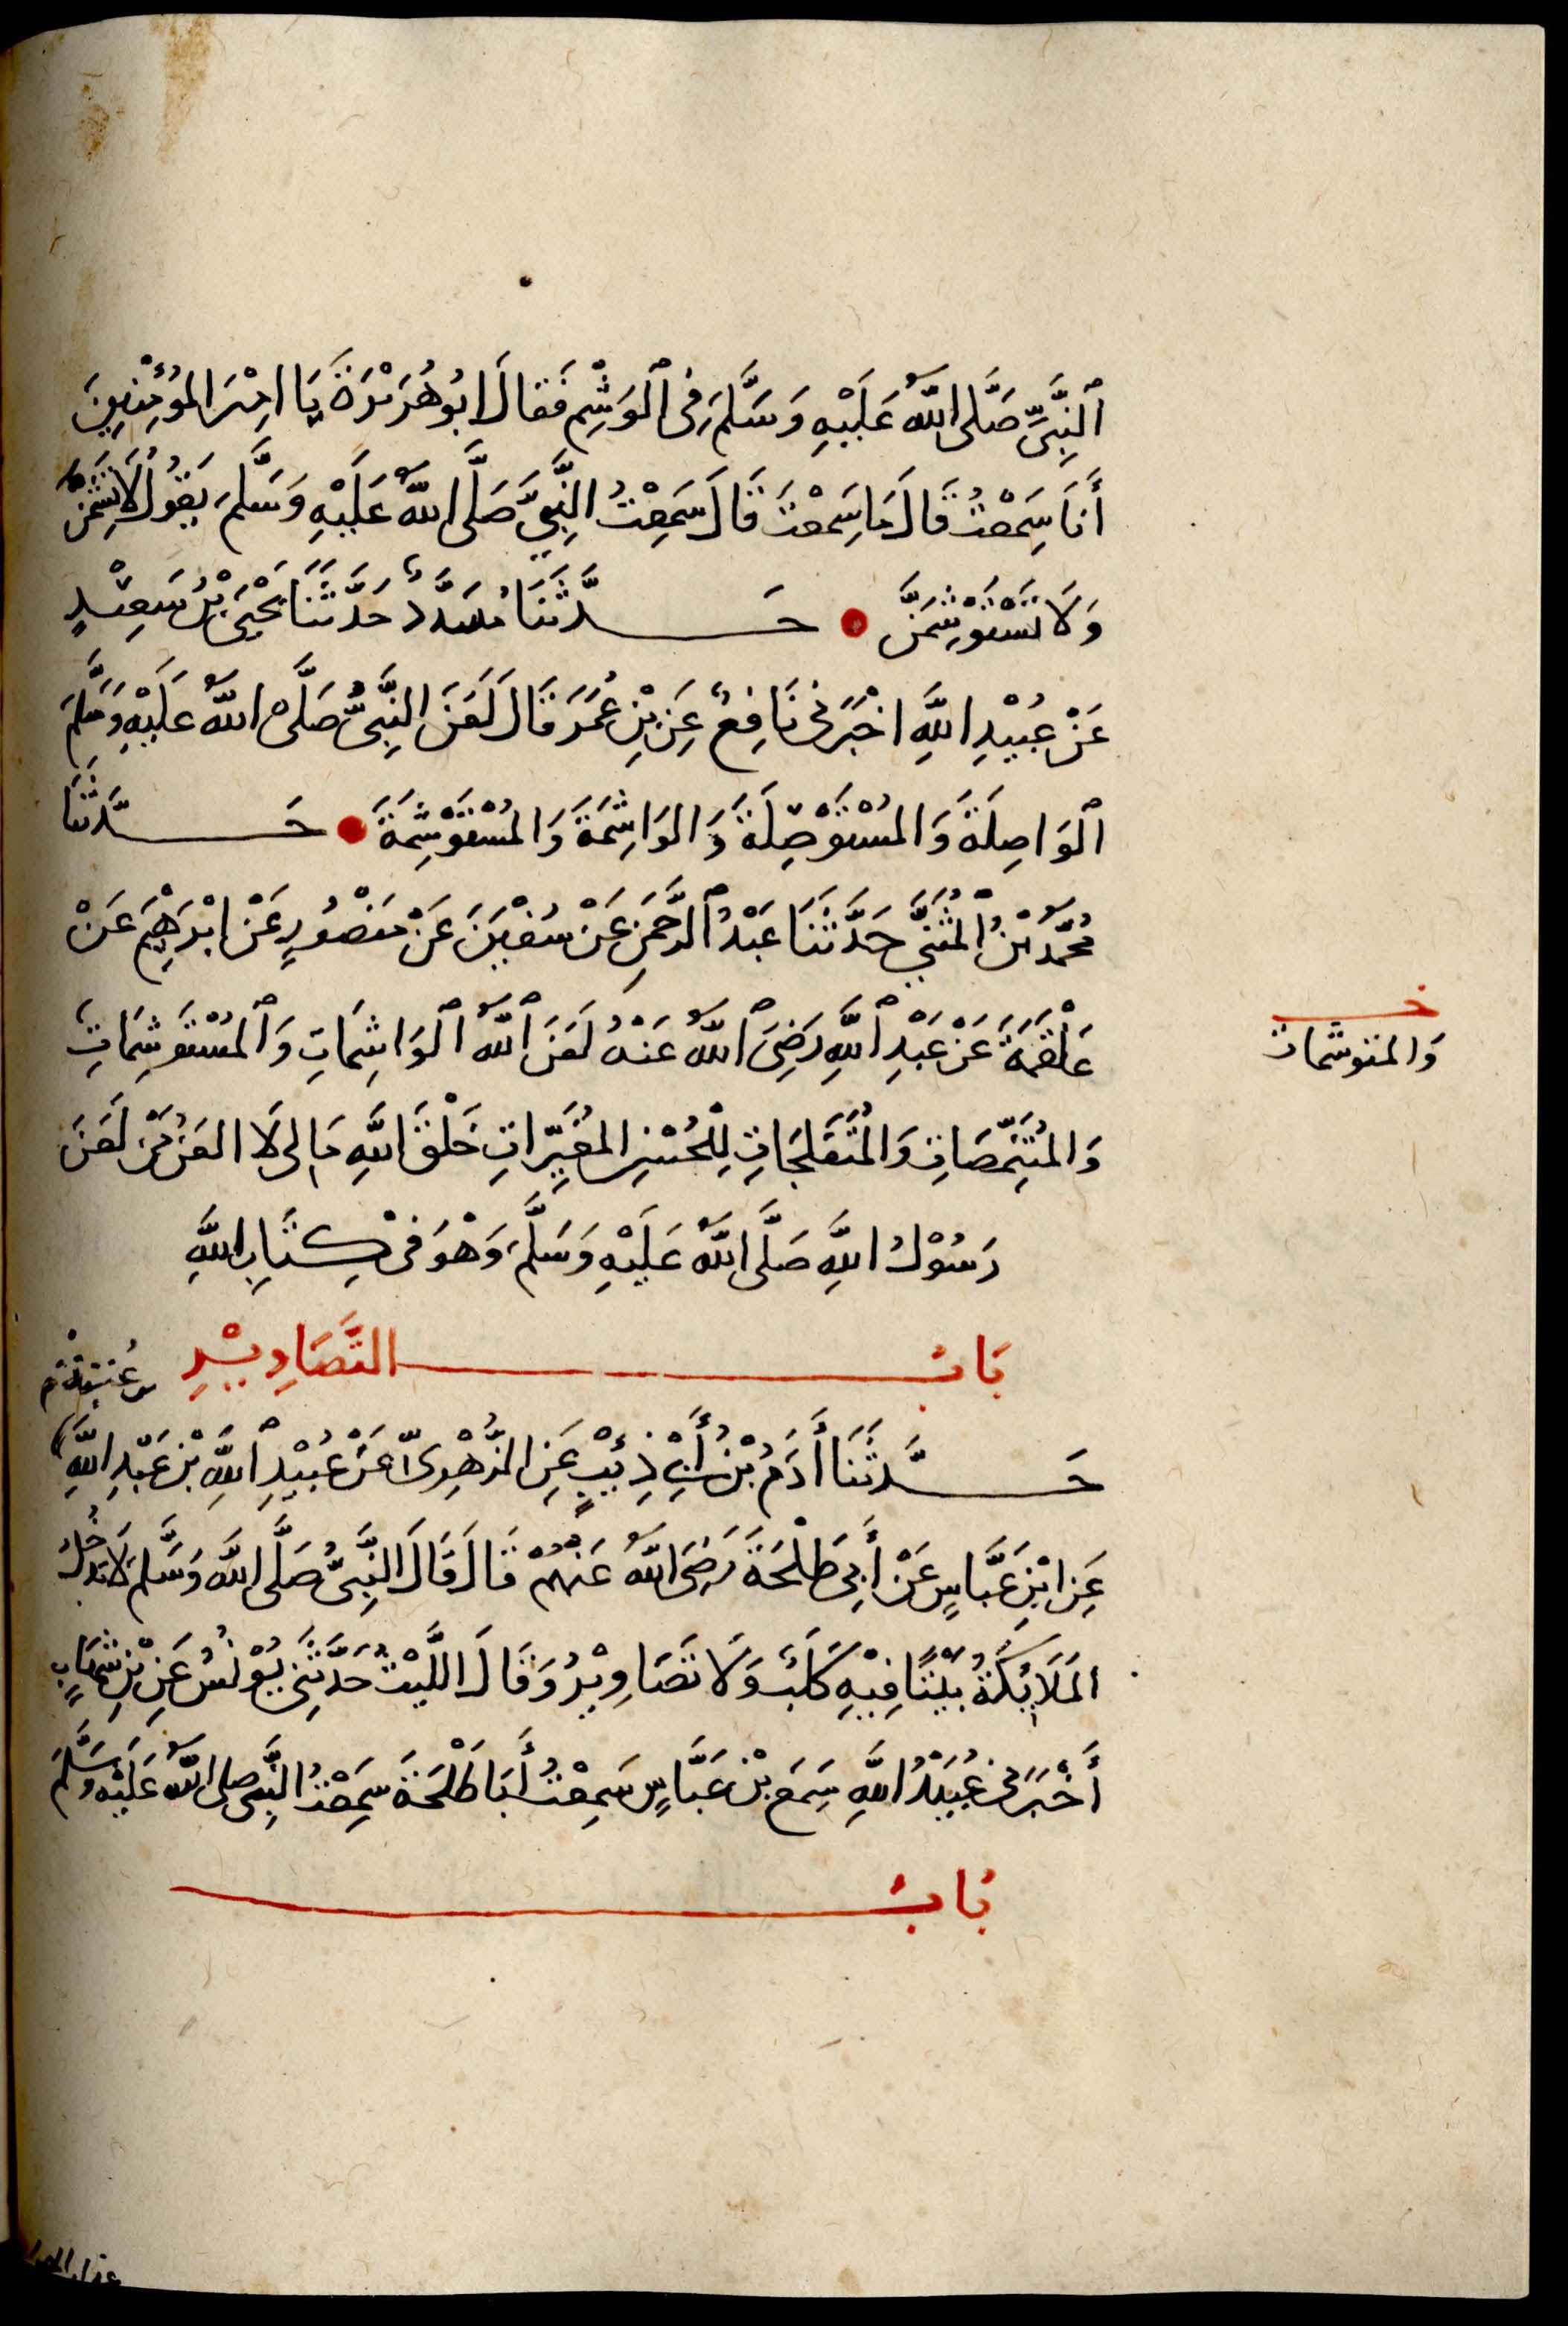 ٱلنَّبِيِّ صَلَّى اللّٰهُ عَلَيْهِ وَسَلَّمَ فِى ٱلْوَشْمِ فَقَالَ ابُو هُرَيْرَةَ يَا امِيْرَ الْمُؤْمِنِينَ
أَنَا سَمِعْتُ قَالَ مَا سَمِعْتَ قَالَ سَمِعْتُ النَّبِيَّ صَلَّى اللّٰهُ عَلَيْهِ وَسَلَّمَ يَقُولُ لَا تَشِمْنَ
وَلَا تَسْتَوْشِمْنَ حَدَّثَنَا مُسَدَّدٌ حَدَّثَنَا يَحْيَى بْنُ سَعِيْدٍ
عَنْ عُبَيْدِ اللّٰهِ اخْبَرَنِى نَافِعٌ عَنِ بْنِ عُمَرَ قَالَ لَعَنَ النَّبِىُّ صَلَّى اللّٰهُ عَلَيْهِ وَسَلَّمَ
ٱلْوَاصِلَةَ وَالْمُسْتَوْصِلَةَ وَالْوَاشِمَةَ وَالْمُسْتَوْشِمَةَ حَدَّثَنَا
مُحَمَّدُ بْنُ ٱلْمُثَنَّي حَدَّثَنَا عَبْدُ ٱلرَّحْمَنِ عَنْ سُفْيَنَ عَنْ مَنْصُورٍ عَنْ ابْرَهِيْمَ عَنْ
عَلْقَمَةَ عَنْ عَبْدِ ٱللّٰهِ رَضِىَ ٱللّٰهُ عَنْهُ لَعَنَ ٱللّٰهُ ٱلْوَاشِمَاتِ وَٱلْمُسْتَوْشِمَاتِ
خـ
وَالمتوشمات
وَالْمُتَنَمِّصَاتِ وَالْمُتَفَلِّجَاتِ لِلْحُسْنِ الْمُغَيِّرَاتِ خَلْقَ اللّٰهِ مَا لِى لَا العَنُ مَنْ لَعَنَ
رَسُوْلُ اللّٰهِ صَلَّى اللّٰهُ عَلَيْهِ وَسَلَّمَ وَهْوَ فِىْ كِتَابِ اللّٰهِ
بَابُ التَّصَاوِيْرِ
حَدَّثَنَا أَدَمُ بْنُ أَبِىْ ذِئْبٍ عَنِ الزُّهْرِىِّ عَنْ عُبَيْدِ ٱللّٰهِ بْنِ عَبْدِ اللّٰهِ
عَنِ ابْنِ عَبَّاسٍ عَنْ أَبِى طَلْحَةَ رَضِىَ اللّٰهُ عَنْهُمْ قَالَ قَالَ النَّبِىُّ صَلَّى اللّٰهُ وَسَلَّمَ لَا تَدْخُلُ
الْمَلَائِكَةُ بَيْتًا فِيْهِ كَلْبٌ وَلَا تَصَاوِيْرُ وَقَالَ اللَّيْثُ حَدَّثَنِى يُوْنُسُ عَنِ بْنِ شِهَابٍ
أَخْبَرَنِى عُبَيْدُ اللّٰهِ سَمِعَ بْنَ عَبَّاسٍ سَمِعْتُ أَبَا طَلْحَةَ سَمِعْتُ النَّبِىَّ صلى اللّٰهُ عَلَيْهِ وَسَلَّمَ
بَابُ